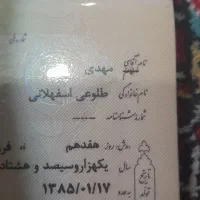 نام آقای مهدی
نام خانوادگی طلوعی اسفهلانی
شماره شناسنامه -----
روز هفدهم
سال یکهزار و سیصد و هشتاد
۱۳۸۵/۰۱/۱۷
تاریخ تولد